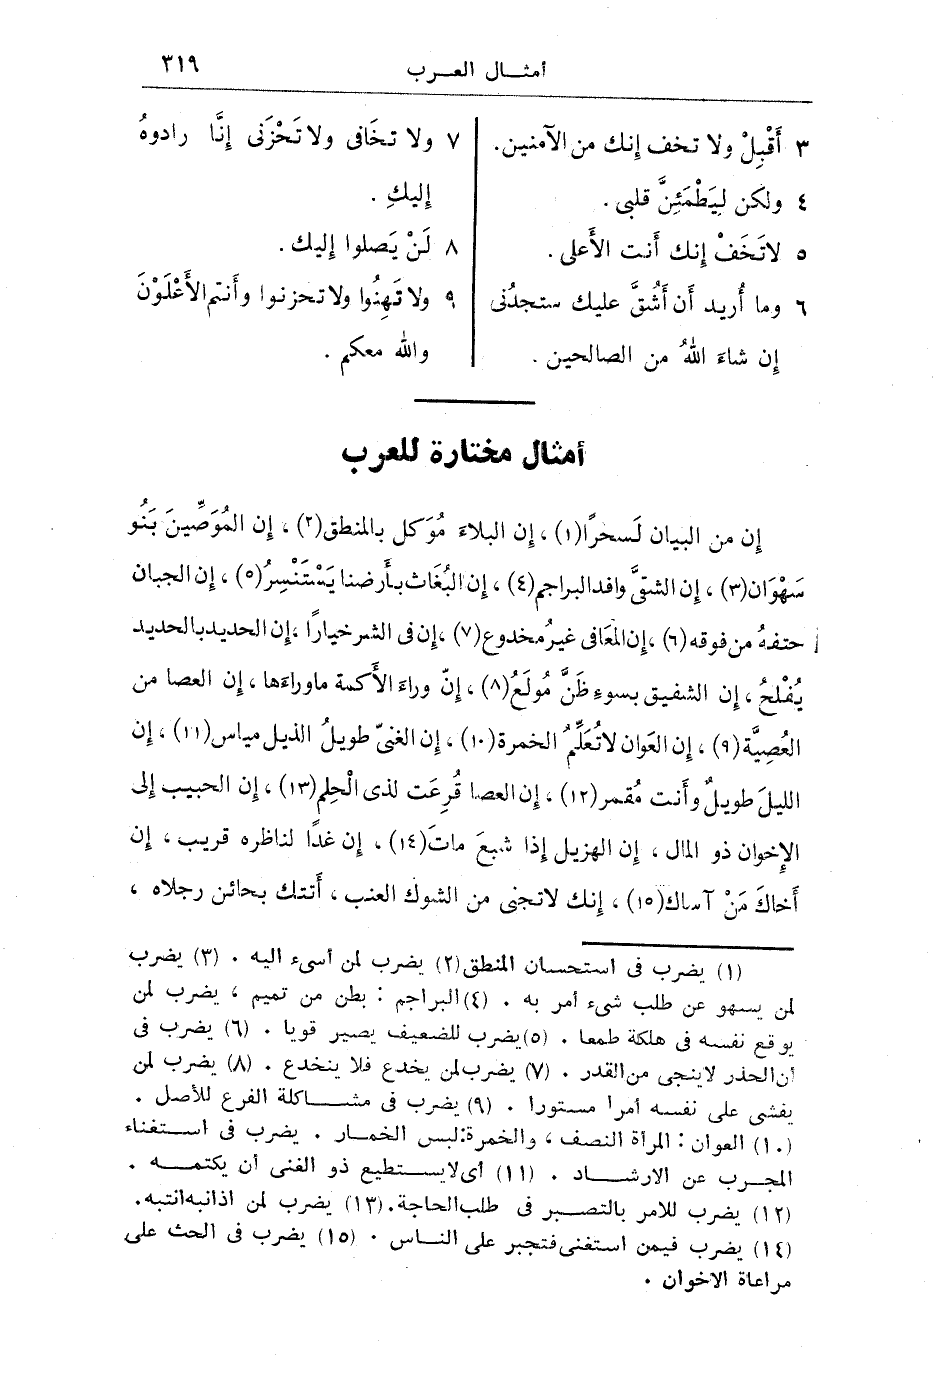 أمثـال العـرب ٣١٩
٣ أَقْبِلْ ولا تخف إنك من الآمنين.
٤ ولكن لِيَطْمَئِنَّ قلبى .
٥ لاتَخَفْ إنك أنت الأَعلى .
٦ وما أُريد أَن أَشُقَّ عليك ستجدُنى
إِن شاءَ اللهُ من الصالحين .
٧ ولا تخَافى ولاتَحْزَنى إِنَّا رادوهُ
إِليكِ .
٨ لَنْ يَصلوا إليك .
٩ ولاتَهِنُوا ولاتحزنوا وأَنتم الأَعْلَوْنَ
والله معكم .
أمثال مختارة للعرب
إِن من البيان لَسحرًا(١) ، إِن البلاءَ مُوَكل بالمنطق(٢) ، إِن المُوَصَّينَ بَنُو
سَهْوَان(٣) ، إِن الشقىَّ وافدالبراجم(٤) ، إِن البُغَاث بأَرضنا يَسْتَنْسِرُ(٥) ، إِن الجبان
حتفهُ من فوقه(٦) ،إِن المعَافى غيرُ مخدوع(٧) ،إِن فى الشر خيارًا ،إِن الحديدبالحديد
يُفْلحُ ، إِن الشفيق بسوءِ ظَنَّ مُولَعُ(٨) ، إِنّ وراءَ الأَكمة ماوراءَها ، إِن العصا من
العُصيَّة(٩) ، إِن العَوان لاتُعَلَّمُ الخمرة(١٠) ، إِن الغنىّ طويلُ الذيل مياس(١١) ، إِن
الليلَ طويلٌ وأَنت مُقمر(١٢) ، إِن العصا قُرِعَت لذى الْحِلم(١٣) ، إِن الحبيب إِلى
الإِخوان ذو المال ، إِن الهزيل إِذا شبعَ ماتَ(١٤) ، إِن غدًا لناظره قريب ، إِن
أَخاكَ مَنْ آساك(١٥) ، إِنك لاتجنى من الشوك العنب ، أَتتك بحائن رجلاه ،
(١) يضرب فى استحسان المنطق(٢) يضرب لمن أسىء اليه . (٣) يضرب
لمن يسهو عن طلب شىء أمر به . (٤)البراجم : بطن من تميم ، يضرب لمن
يوقع نفسه فى هلكة طمعا . (٥)يضرب للضعيف يصير قويا . (٦) يضرب فى
أن الحذر لاينجى من القدر . (٧) يضرب لمن يخدع فلا ينخدع . (٨) يضرب لمن
يفشى على نفسه أمرا مستورا . (٩) يضرب فى مشـاكلة الفرع للأصل .
(١٠) العوان : المرأة النصف ، والخمرة:لبس الخمار . يضرب فى استغناء
المجرب عن الارشـاد . (١١) أى لايستطيع ذو الغنى أن يكتمـه .
(١٢) يضرب للامر بالتصبر فى طلب الحاجة.(١٣) يضرب لمن اذانبه انتبه.
(١٤) يضرب فيمن استغنى فتجبر على النـاس . (١٥) يضرب فى الحث على
مراعاة الاخوان .